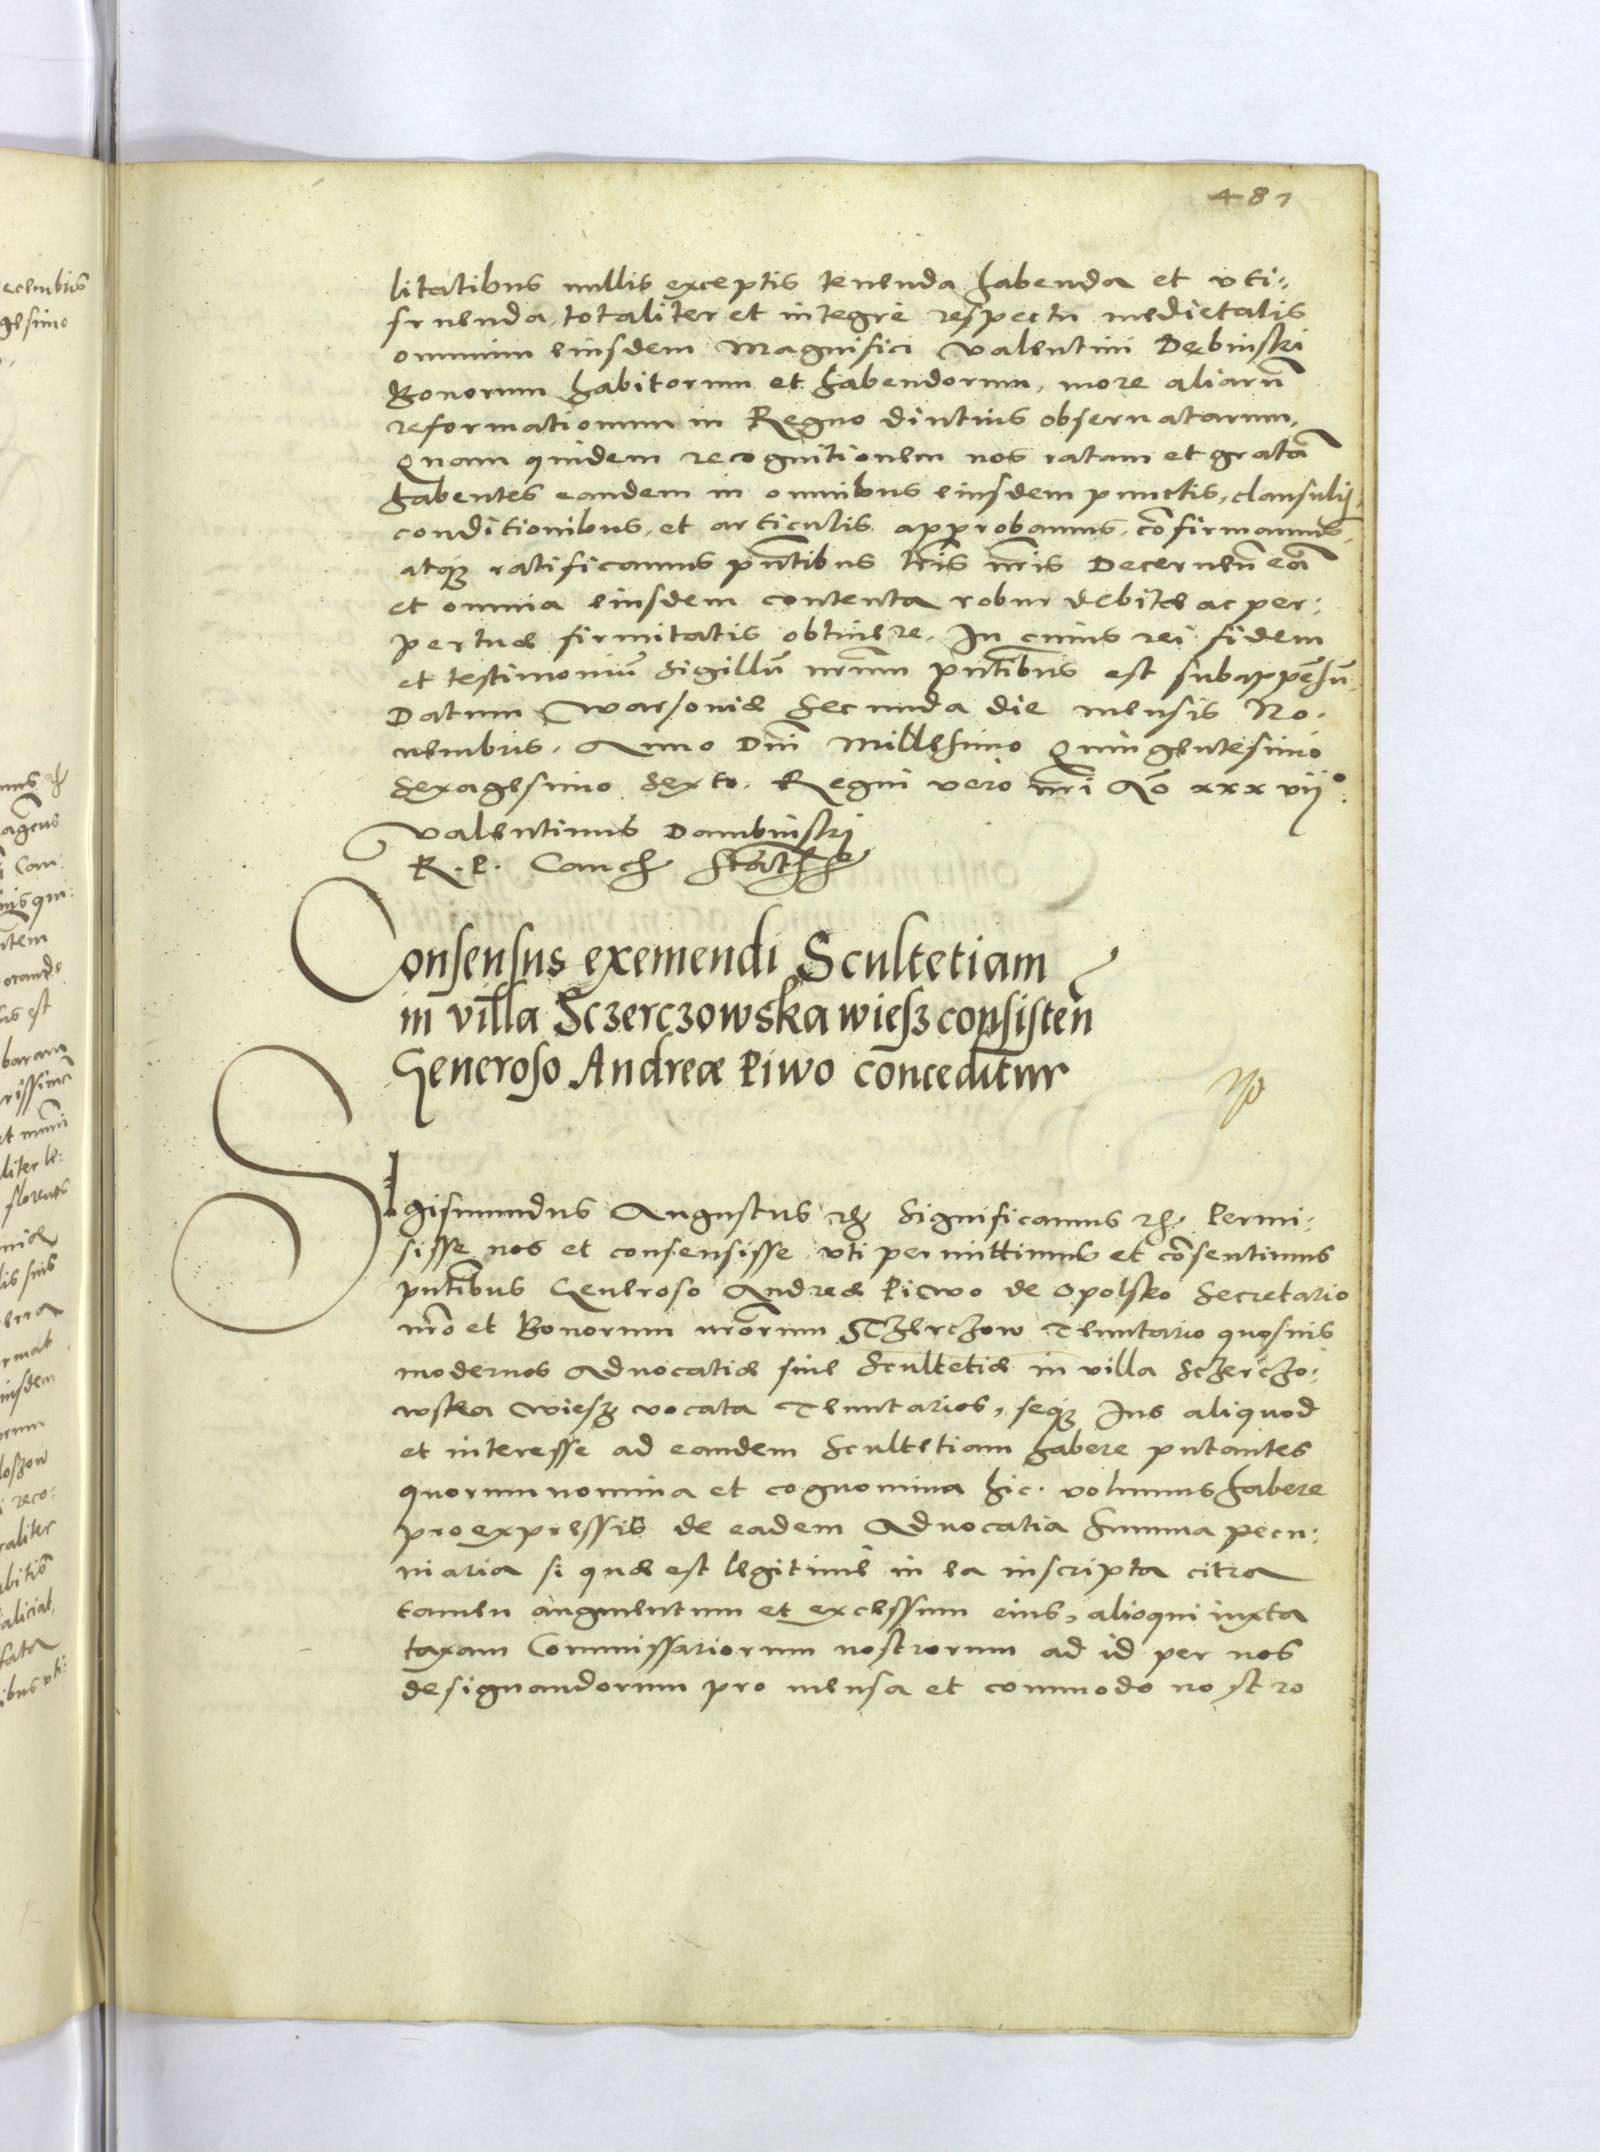 481
litatibus nullis exceptis tenenda habenda et uti-
fruenda, totaliter et integrè respectu medietatis
omnium eiusdem Magnifici Valentini Dębinski
Bonorum habitorum et habendorum, more aliarū
reformationum in Regno diutius obseruatarum,
Quam quidem recognitionem nos ratam et gratā
habentes eandem in omnibus eiusdem punctis, clausulis,
conditionibus, et articulis approbamus, cōfirmamus,
atq̃ ratificamus pñtibus lr̃is nr̃is Decernen̄ eā
et omnia eiusdem contenta robur debitæ ac per:
pertuæ firmitatis obtinere. In cuius rei fidem
et testimoniū Sigillū nr̃um pñtibus est subappēsū.
Datum Warsoviæ Secunda die mensis No-
uembris. Anno Dn̄i Millesimo Quingentesimo
Sexagesimo Sexto. Regni vero nr̃i Aō xxxvij°.
Valentinus Dambinski
R. P. Canc
Consensus exemendi Scultetiam
in villa Sczerczowska wiesz consisten̄
Generoso Andreæ Piwo conceditur
Sigismundus Augustus Significamus Permi:
sisse nos et consensisse uti permittimus et cōsentimus
pñtibus Generoso Andreæ Piwo de Opolsko Secretario
nr̃o et Bonorum nr̃orum Sczerczow Tenutario quosuis
modernos Aduocatiæ siue Scultetiæ in villa Sczerczo:
wska wiesz vocata Tenutarios, seq̃ Ius aliquod
et interesse ad eandem Scultetiam habere putantes
quorum nomina et cognomina hic volumus habere
pro expressis de eadem Aduocatia Summa pecu:
niaria si quæ est legitimè in ea inscripta citra
tamen augmentum et excessum eius, alioqui iuxta
taxam Commissariorum nostrorum ad id per nos
designandorum pro mensa et commodo nostro